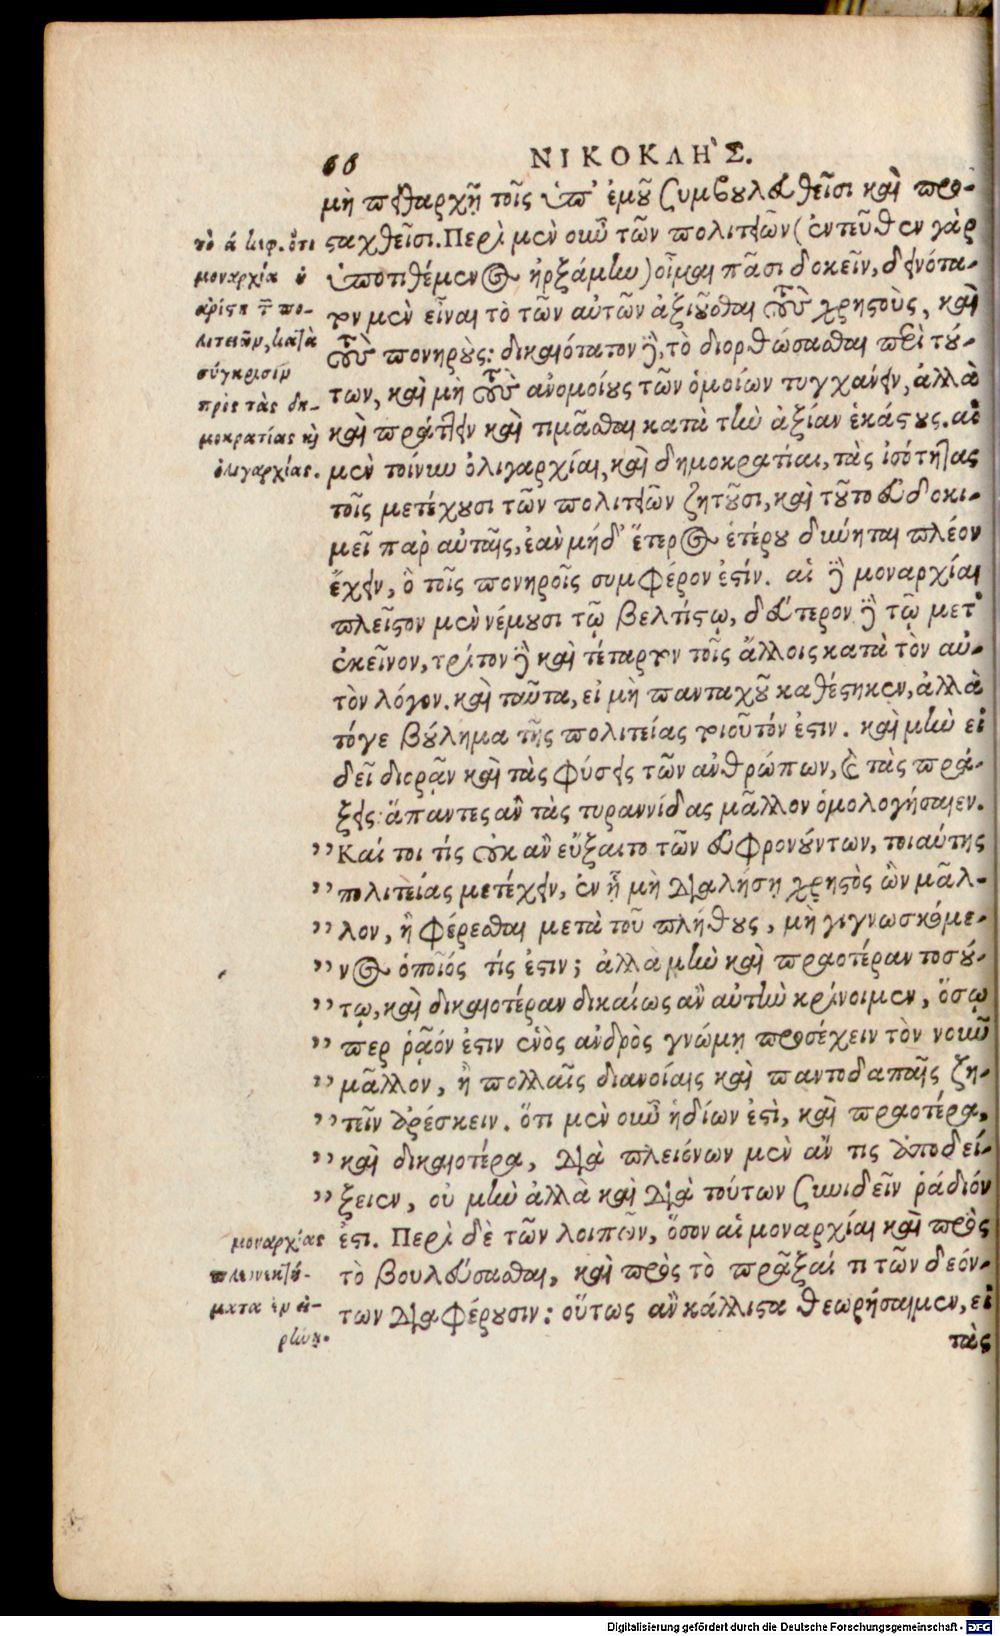 66
ΝΙΚΟΚΛΗ῀Σ.
μὴ πειθαρχῇ τοῖς ὑπ’ ἐμοῦ συμβουλευθεῖσι καὶ προ-
ςαχθεῖσι. Περὶ μὲν οὖν τῶν πολιτειῶν (ἐντεῦθεν γὰρ
ὑποτιθέμενος ἠρξάμην) οἶμαι πᾶσι δοκεῖν, δεινότα-
τον μὲν εἶναι τὸ τῶν αὐτῶν ἀξιοῦσθαι τοὺς χρηςοὺς, καὶ
τοὺς πονηροὺς: δικαιότατον δὲ, τὸ διορθώσασθαι περὶ τού-
των, καὶ μὴ τοὺς ἀνομοίους τῶν ὁμοίων τυγχάνειν, ἀλλὰ
καὶ πράττειν καὶ τιμᾶσθαι κατὰ τὴν ἀξίαν ἑκάςους. αἱ
μὲν τοίνυν ὀλιγαρχίαι, καὶ δημοκρατίαι, τὰς ἰσότητας
τοῖς μετέχουσι τῶν πολιτειῶν ζητοῦσι, καὶ τοῦτο εὐδοκι-
μεῖ παρ αὐταῖς, ἐὰν μήδ’ ἕτερος ἑτέρου δύνηται πλέον
ἔχειν, ὃ τοῖς πονηροῖς συμφέρον ἐςίν. αἱ δὲ μοναρχίαι
πλεῖςον μὲν νέμουσι τῷ βελτίςῳ, δεύτερον δὲ τῷ μετ’
ἐκεῖνον, τρίτον δὲ καὶ τέταρτον τοῖς ἄλλοις κατὰ τὸν αὐ-
τὸν λόγον. καὶ ταῦτα, εἰ μὴ πανταχοῦ καθέςηκεν, ἀλλὰ
τόγε βούλημα τῆς πολιτείας τοιοῦτόν ἐςιν. καὶ μὴν εἰ
δεῖ διορᾷν καὶ τὰς φύσεις τῶν ἀνθρώπων, καὶ τὰς πρά-
ξεις: ἅπαντες ἂν τὰς τυραννίδας μᾶλλον ὁμολογήσαιεν.
” Καί τοι τίς οὐκ ἂν εὔξαιτο τῶν εὐφρονούντων, τοιαύτης
” πολιτείας μετέχειν, ἐν ᾗ μὴ διαλήσῃ χρηςὸς ὢν μᾶλ-
” λον, ἢ φέρεσθαι μετὰ τοῦ πλήθους, μὴ γιγνωσκόμε-
” νος ὁποῖός τίς ἐςιν; ἀλλὰ μὴν καὶ πραοτέραν τοσού-
” τῳ, καὶ δικαιοτέραν δικαίως ἂν αὐτὴν κρίνοιμεν, ὅσῳ
” περ ῥᾷόν ἐςιν ἑνὸς ἀνδρὸς γνώμῃ προσέχειν τὸν νοῦν
” μᾶλλον, ἢ πολλαῖς διανοίαις καὶ παντοδαπαῖς ζη-
” τεῖν ἀρέσκειν. ὅτι μὲν οὖν ἡδίων ἐςὶ, καὶ πραοτέρα,
” καὶ δικαιοτέρα, διὰ πλειόνων μὲν ἄν τις ἀποδεί-
” ξειεν, οὐ μὴν ἀλλὰ καὶ διὰ τούτων συνιδεῖν ῥάδιόν
ἐςι. Περὶ δὲ τῶν λοιπῶν, ὅσον αἱ μοναρχίαι καὶ πρὸς
τὸ βουλεύσασθαι, καὶ πρὸς τὸ πρᾶξαί τι τῶν δεόν-
των διαφέρουσιν: οὕτως ἂν κάλλιςα θεωρήσαιμεν, εἰ
τὰς
τὸ ά κεφ. ὅτι
μοναρχία ἡ
ἀρίςη τῶν πο-
λιτειῶν, κατὰ
σύγκρισιν
πρὸς τὰς δη-
μοκρατίας καὶ
ὀλιγαρχίας.
μοναρχίας
πλεονεκτή-
ματα ἐν εἰ-
ρήνῃ.
Digitalisierung gefördert durch die Deutsche Forschungsgemeinschaft - DFG